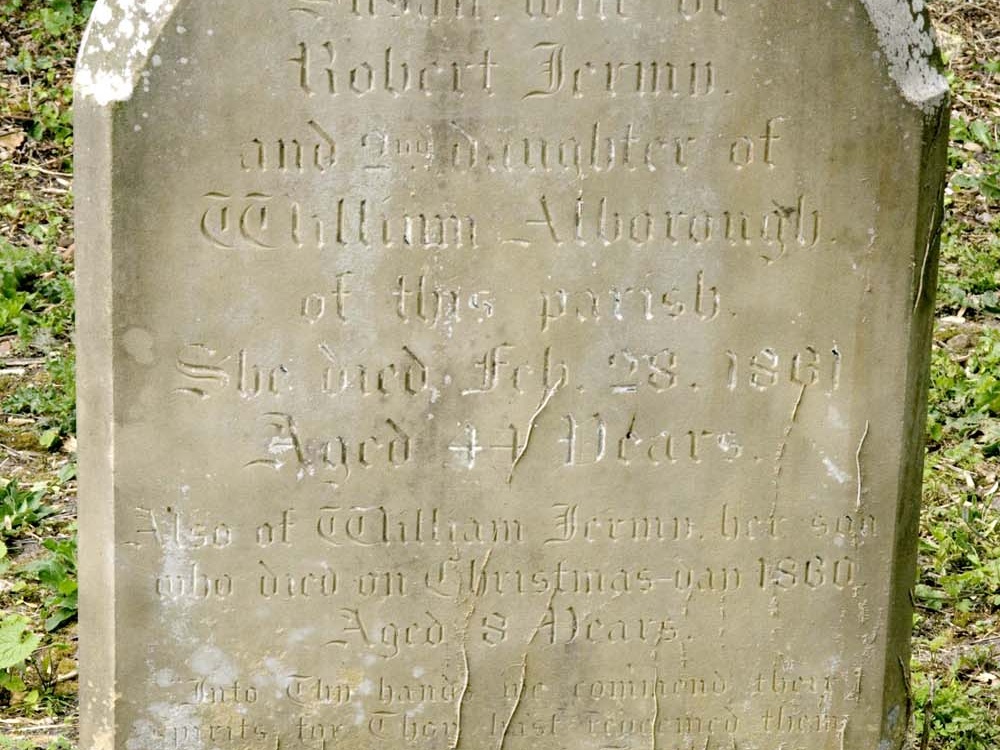 Susan, wife of
Robert Jermyn.
and 2nd daughter of
William Alborough.
of this parish.
She died, Feb. 28. 1861
Aged 44 Years.
Also of William Jermyn, her son
who died on Christmas-day 1860,
Aged 8 Years.
Into Thy hands we commend their
spirits, for Thou hast redeemed them